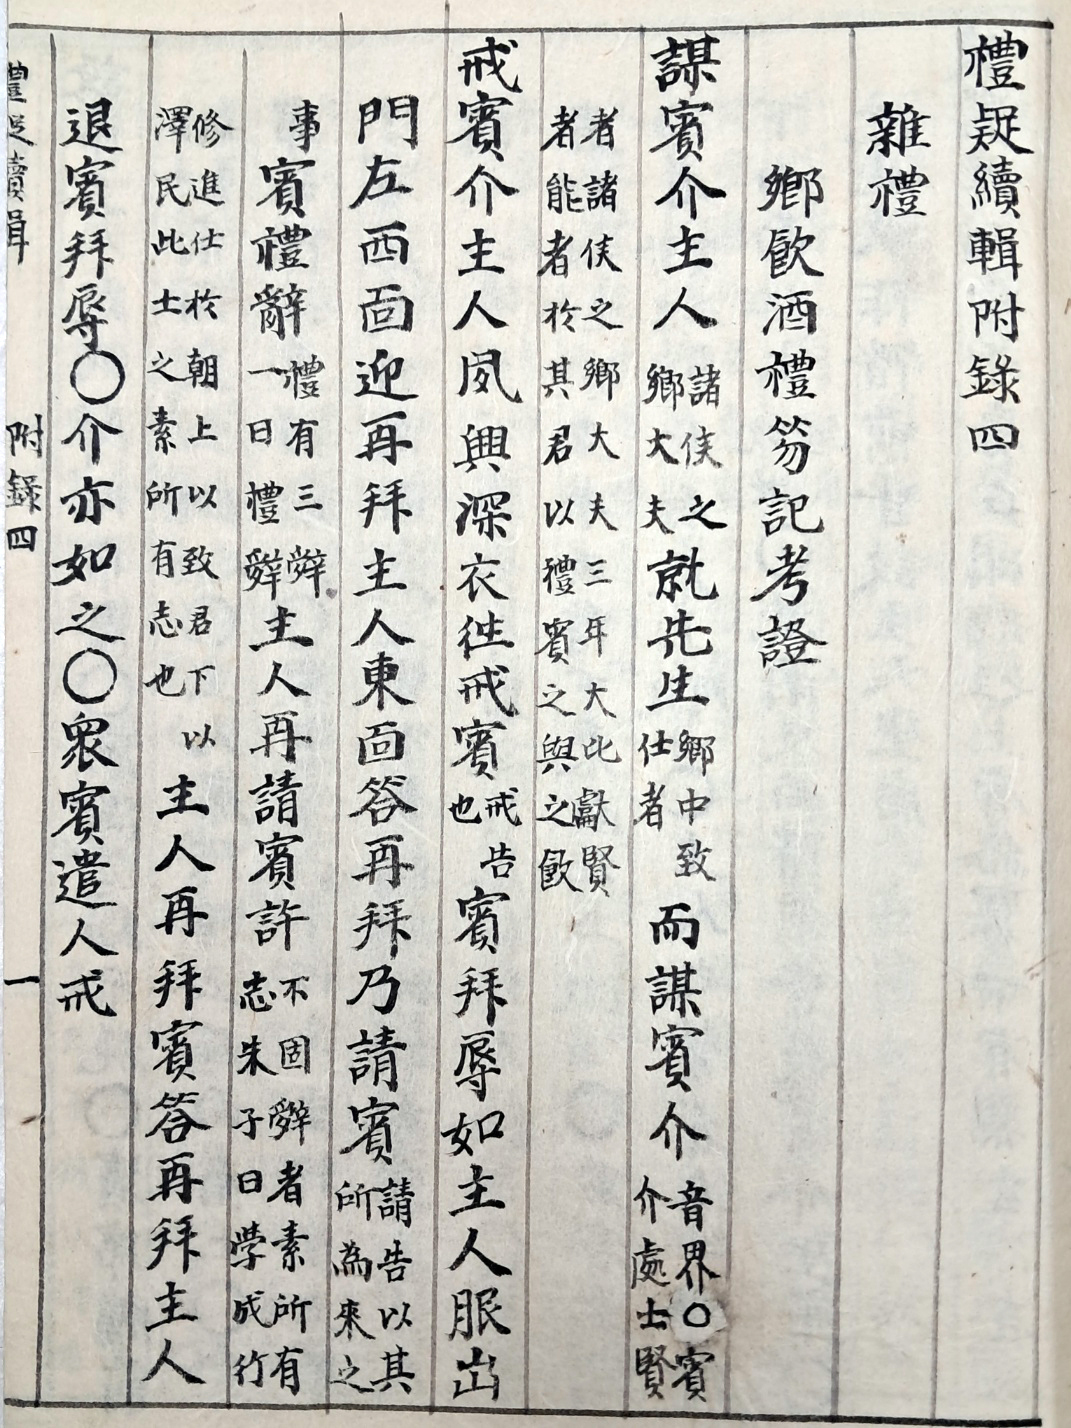 禮疑續輯附錄四
雜禮
鄉飮酒禮笏記考證
謀賓介主人諸侯之鄉大夫就先生鄉中致仕者而謀賓介音界○賓介處士賢
者諸侯之鄉大夫三年大比獻賢者能者於其君以禮賓之與之飮
戒賓介主人夙興深衣徃戒賓戒告也賓拜辱如主人服出
門左西面迎再拜主人東面答再拜乃請賓請告以其所為來之
事賓禮辭禮有三辤一曰禮辤主人再請賓許不固辤者素所有志朱子曰學成行
修進仕於朝上以致君下以澤民此士之素所有志也主人再拜賓答再拜主人
退賓拜辱○介亦如之○衆賓遣人戒
禮疑續輯 附錄四 一